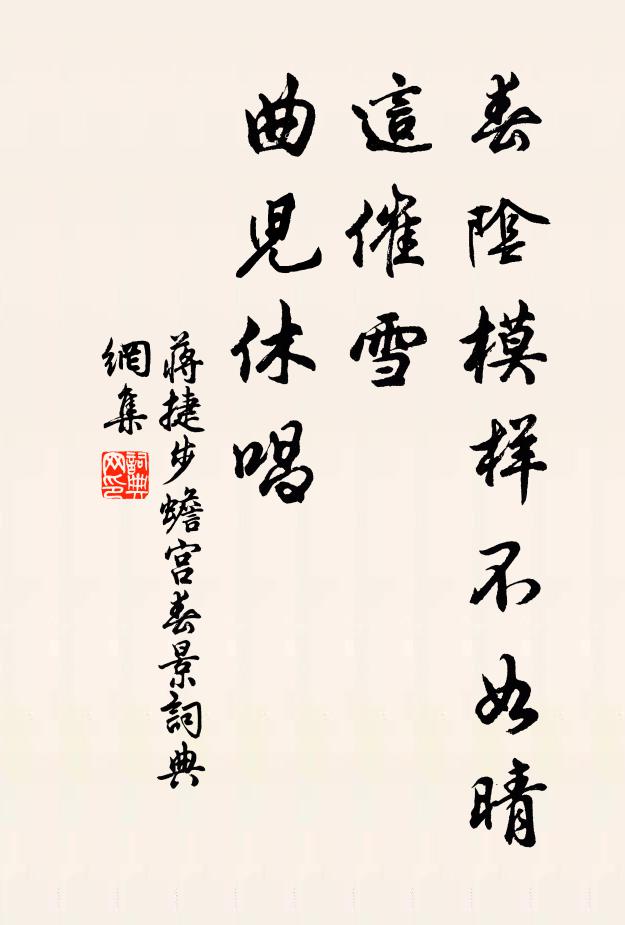 春陰模样不如晴
這催雪
曲児休唱
蔣捷步蟾宮春景詞典
網集
詞典网印